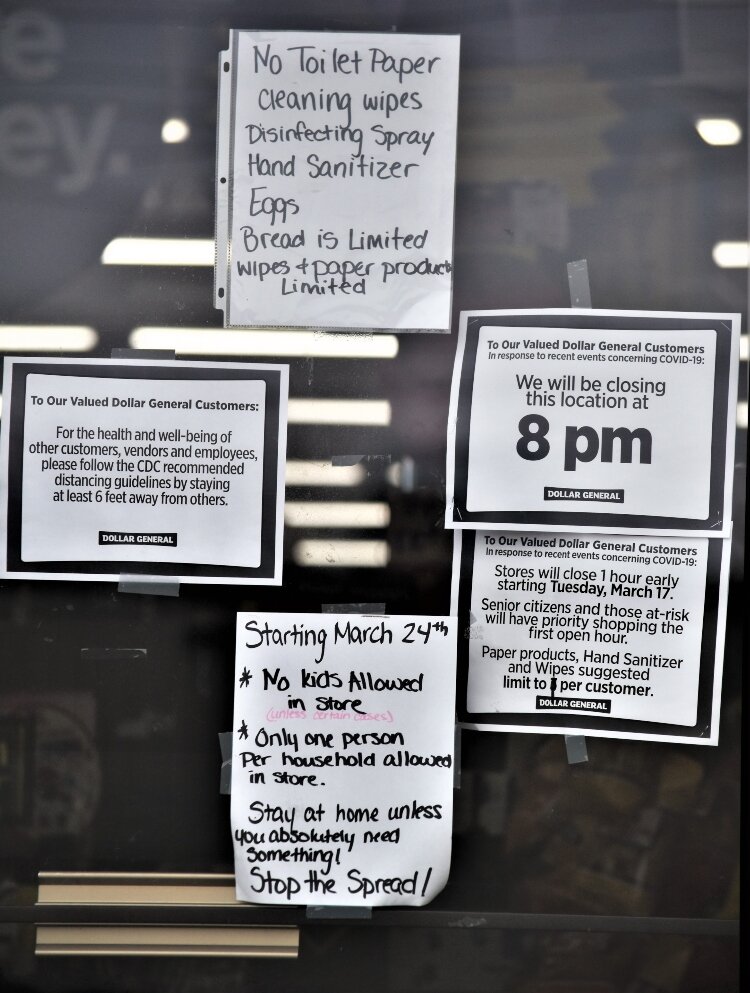 e
ey.
No Toilet Paper
Cleaning wipes
Disinfecting Spray
Hand Sanitizer
Eggs
Bread is Limited
wipes + paper product
Limited
To Our Valued Dollar General Customers:
For the health and well-being of
other customers, vendors and employees,
please follow the CDC recommended
distancing guidelines by staying
at least 6 feet away from others.
DOLLAR GENERAL
To Our Valued Dollar General Customers
In response to recent events concerning COVID-19:
We will be closing
this location at
8 pm
DOLLAR GENERAL
To Our Valued Dollar General Customers
In response to recent events concerning COVID-19:
Stores will close 1 hour early
starting Tuesday, March 17.
Senior citizens and those at-risk
will have priority shopping the
first open hour.
Paper products, Hand Sanitizer
and Wipes suggested
limit to per customer.
DOLLAR GENERAL
Starting March 24th
* No kids Allowed
in store
(unless certain cases)
* Only one person
Per household allowed
in store.
Stay at home unless
you absolutely need
Something!
Stop the Spread!